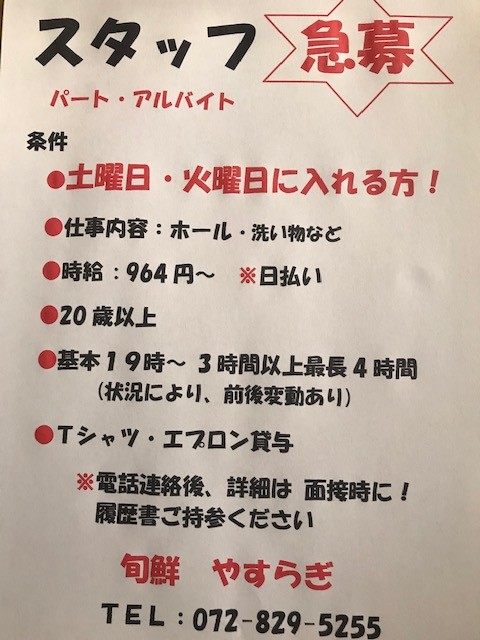 スタッフ 急募
パート・アルバイト
条件
●土曜日・火曜日に入れる方！
●仕事内容：ホール・洗い物など
●時給：964円～ ※日払い
●20歳以上
●基本１９時～ ３時間以上最長４時間
（状況により、前後変動あり）
●Ｔシャツ・エプロン貸与
※電話連絡後、詳細は 面接時に！
履歴書ご持参ください
旬鮮 やすらぎ
ＴＥＬ：072-829-5255